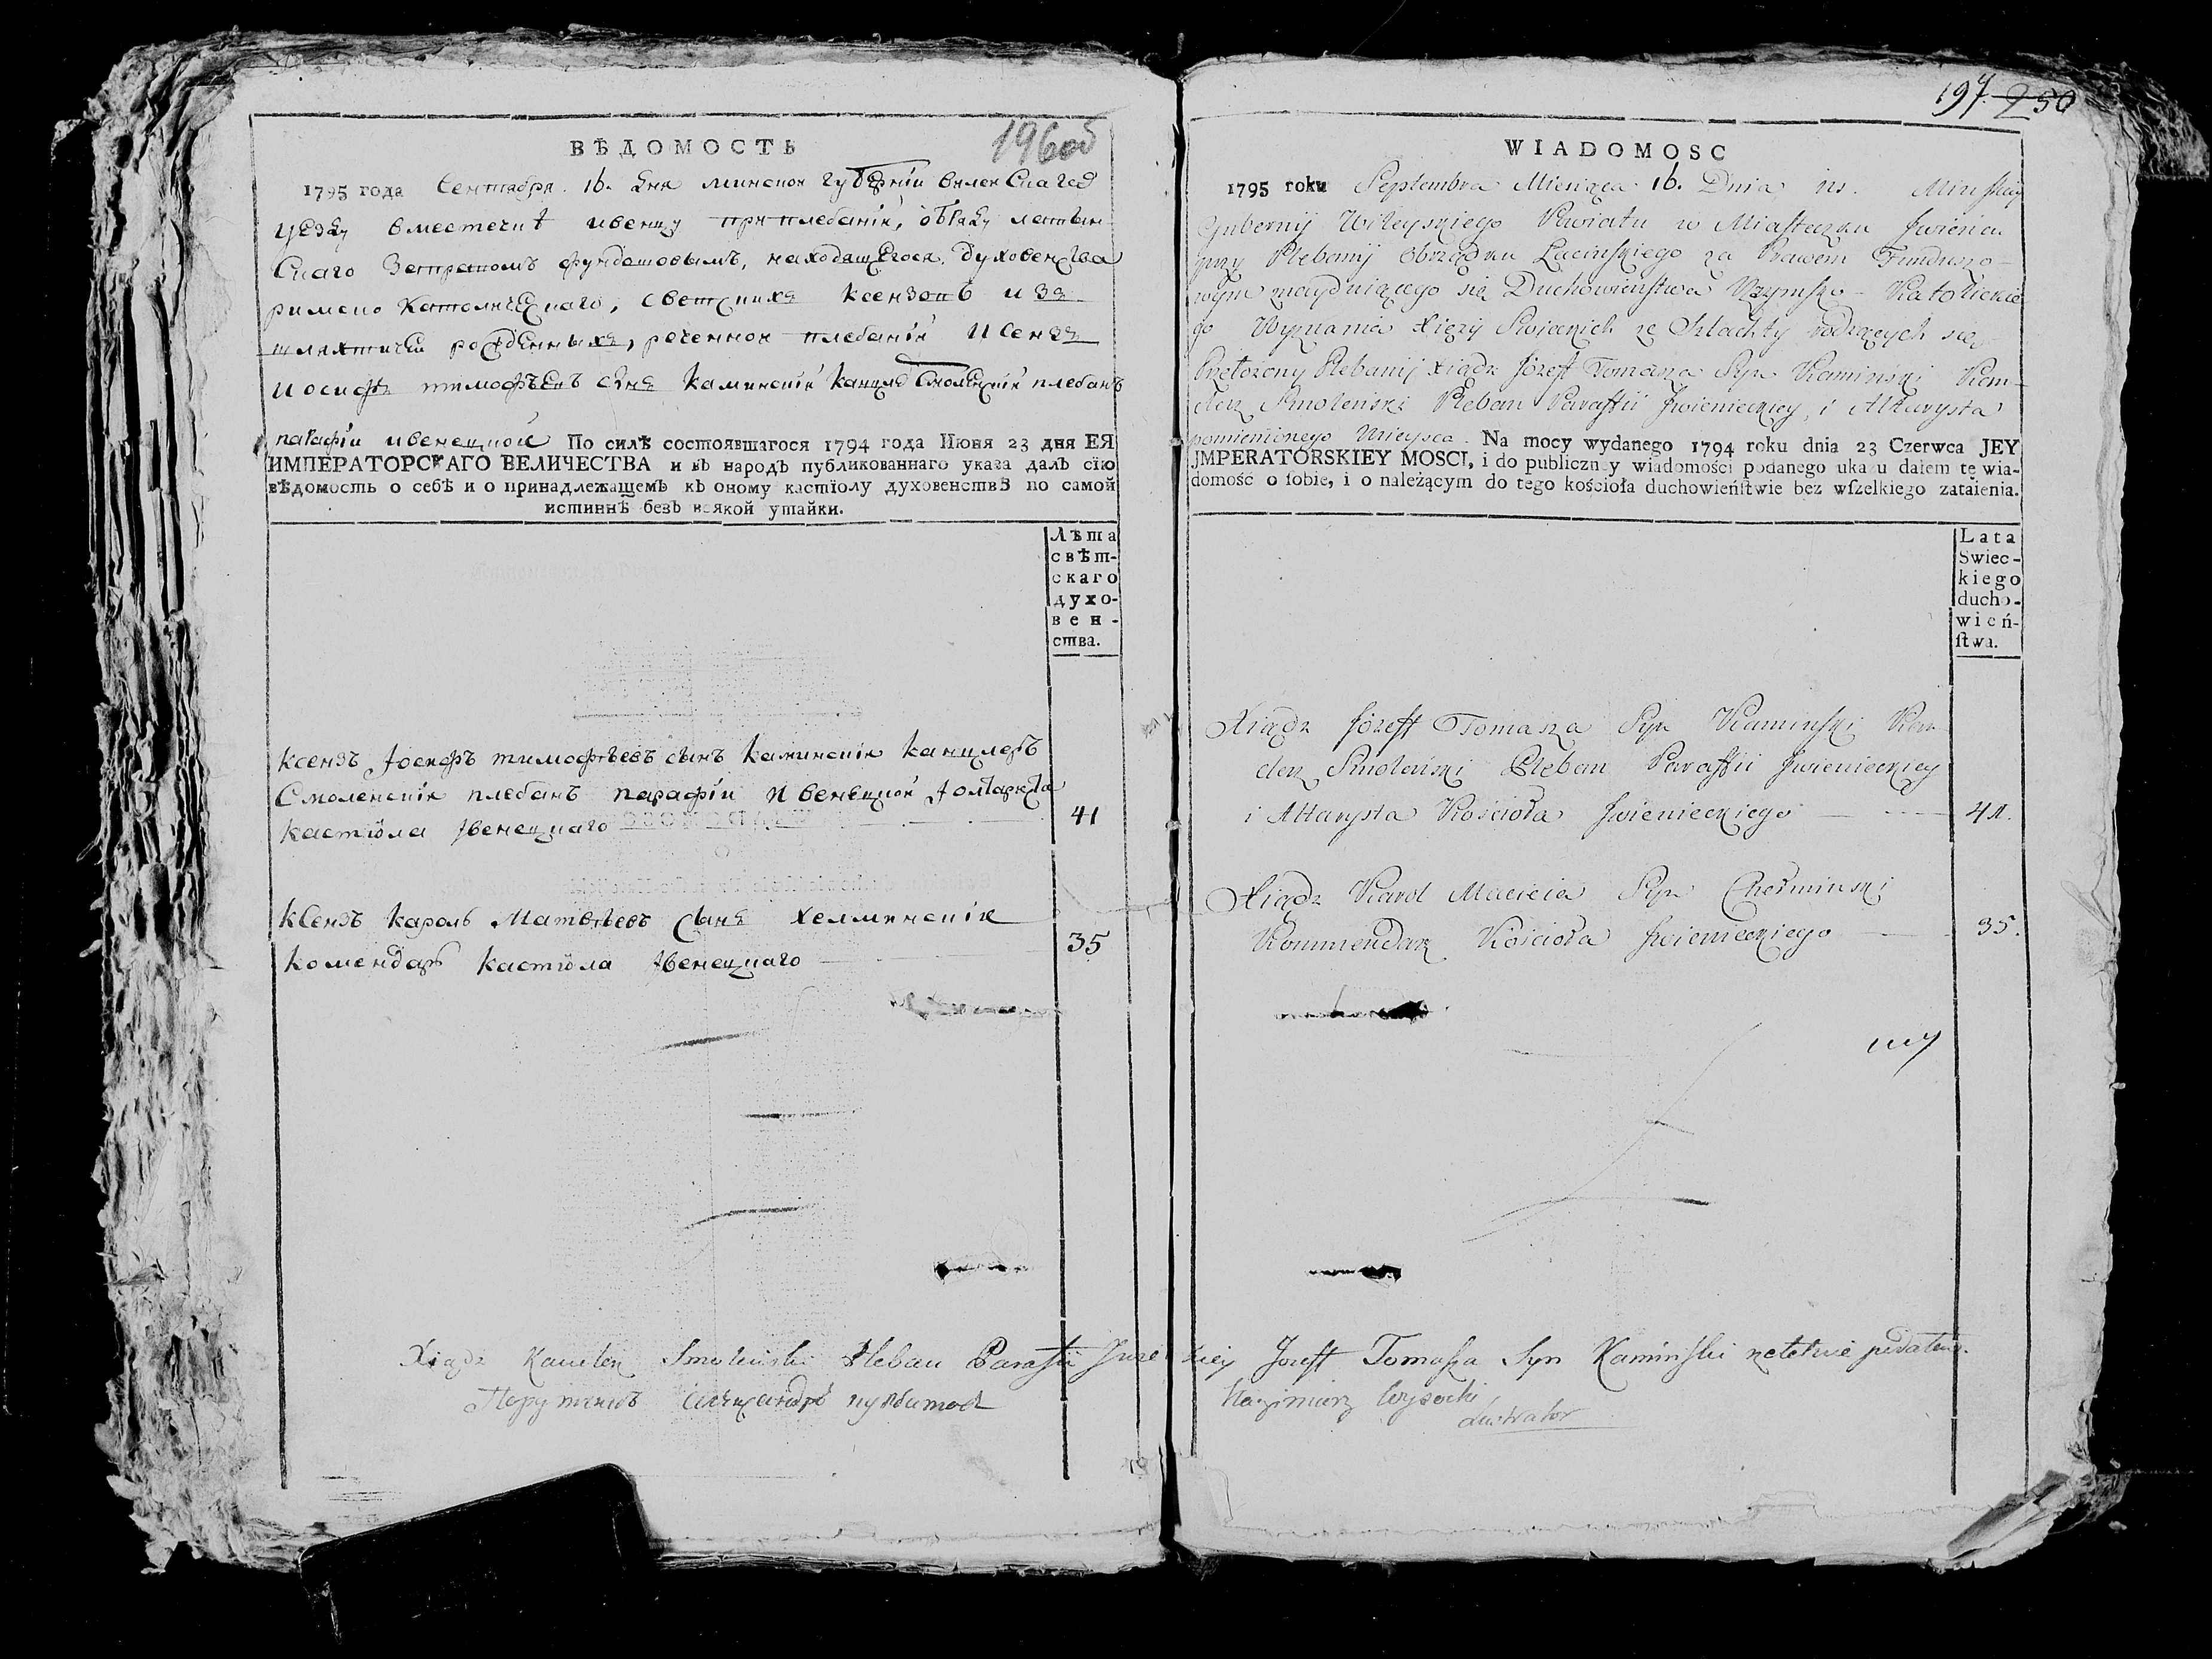 196 об
ВѢДОМОСТЬ
1795 года Сентября 16. дня минской губернїи вилейскаго
уезду вместечкѣ ивенцу при плебанїи, обряду латын
скаго заправомъ фундошовымъ, находящегося духовенства
римско католическаго, светскихъ ксензовъ изъ
шляхтичей рожденныхъ, реченной плебанїи Ксензъ
иосифъ тимофѣевъ сынъ каминскїй канцлеръ смоленскїй плебанъ
парафїи ивенецкой По силѣ состоявшагося 1794 года Июня 23 дня ЕЯ
ИМПЕРАТОРСКАГО ВЕЛИЧЕСТВА и въ народъ публикованнаго указа далъ сїю
вѣдомость о себѣ и о принадлежащемъ къ оному кастїолу духовенствѣ по самой
истиннѣ безъ всякой утайки.
Лѣта
свѣт-
скаго
духо-
вен-
ства.
ксензъ Іосифъ тимофѣевъ сынъ каминскїй канцлеръ
Смоленскїй плебанъ парафїи Ивенецкой
кастїола Ивенецкаго 41
ксензъ кароль Матвѣевъ сынъ хелминскїй
комендаръ кастїола Ивенецкаго 35
Xiądz Kanclerz Smoleński Pleban Parafii
Порутчикъ александръ
197. 250
WIADOMOSC
1795 roku Septembra Miesiąca 16. Dnia ns. Minskiey
Gubernij Wileyskiego Powiatu w Miasteczku Iwieńcu
przy Plebanij Obrządku Łacińskiego za Prawem Funduszo-
wym znayduiącego się Duchowieństwa Rzymsko-Katolickie
go Wyznania Xięży Swieckich ze Szlachty rodzących się
Przełożony Plebanij Xiądz Józeff Tomasza Syn Kamiński Kan-
clerz Smoleński Pleban Paraffii Iwienieckiey, i Altarysta
pomienionego Mieysca. Na mocy wydanego 1794 roku dnia 23 Czerwca JEY
JMPERATORSKIEY MOSCI, i do publiczney wiadomości podanego ukazu dałem tę wia-
domość o ſobie, i o należącym do tego kościoła duchowieńſtwie bez wſzelkiego zataienia.
Lata
Swiec-
kiego
ducho-
wień-
ſtwa.
Xiądz Józeff Tomasza Syn Kamiński Kan
clerz Smoleński Pleban Paraffii Iwienieckiey
i Altarysta Kościoła Iwienieckiego 41.
Xiądz Karol Macieia Syn Chełminski
Kommendarz Kościoła Iwienieckiego 35.
Jozeff Tomasza Syn Kamiński
Kazimierz Wysocki
Lustrator